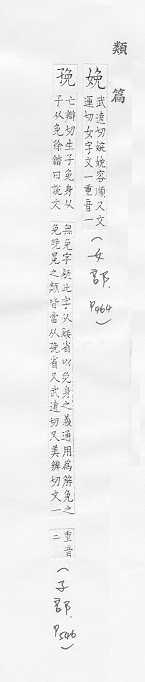 類篇
娩 武遠切婉娩容順又文
運切女字文一重音一
(女部 P464)
㝃 亡辯切生子免身从
子从免徐鍇曰說文
無免字疑此字从㝃省以免身之義通用爲解免之
免晚冕之類皆當从㝃省又武遠切又美辨切文一
重音二
(子部 P546)